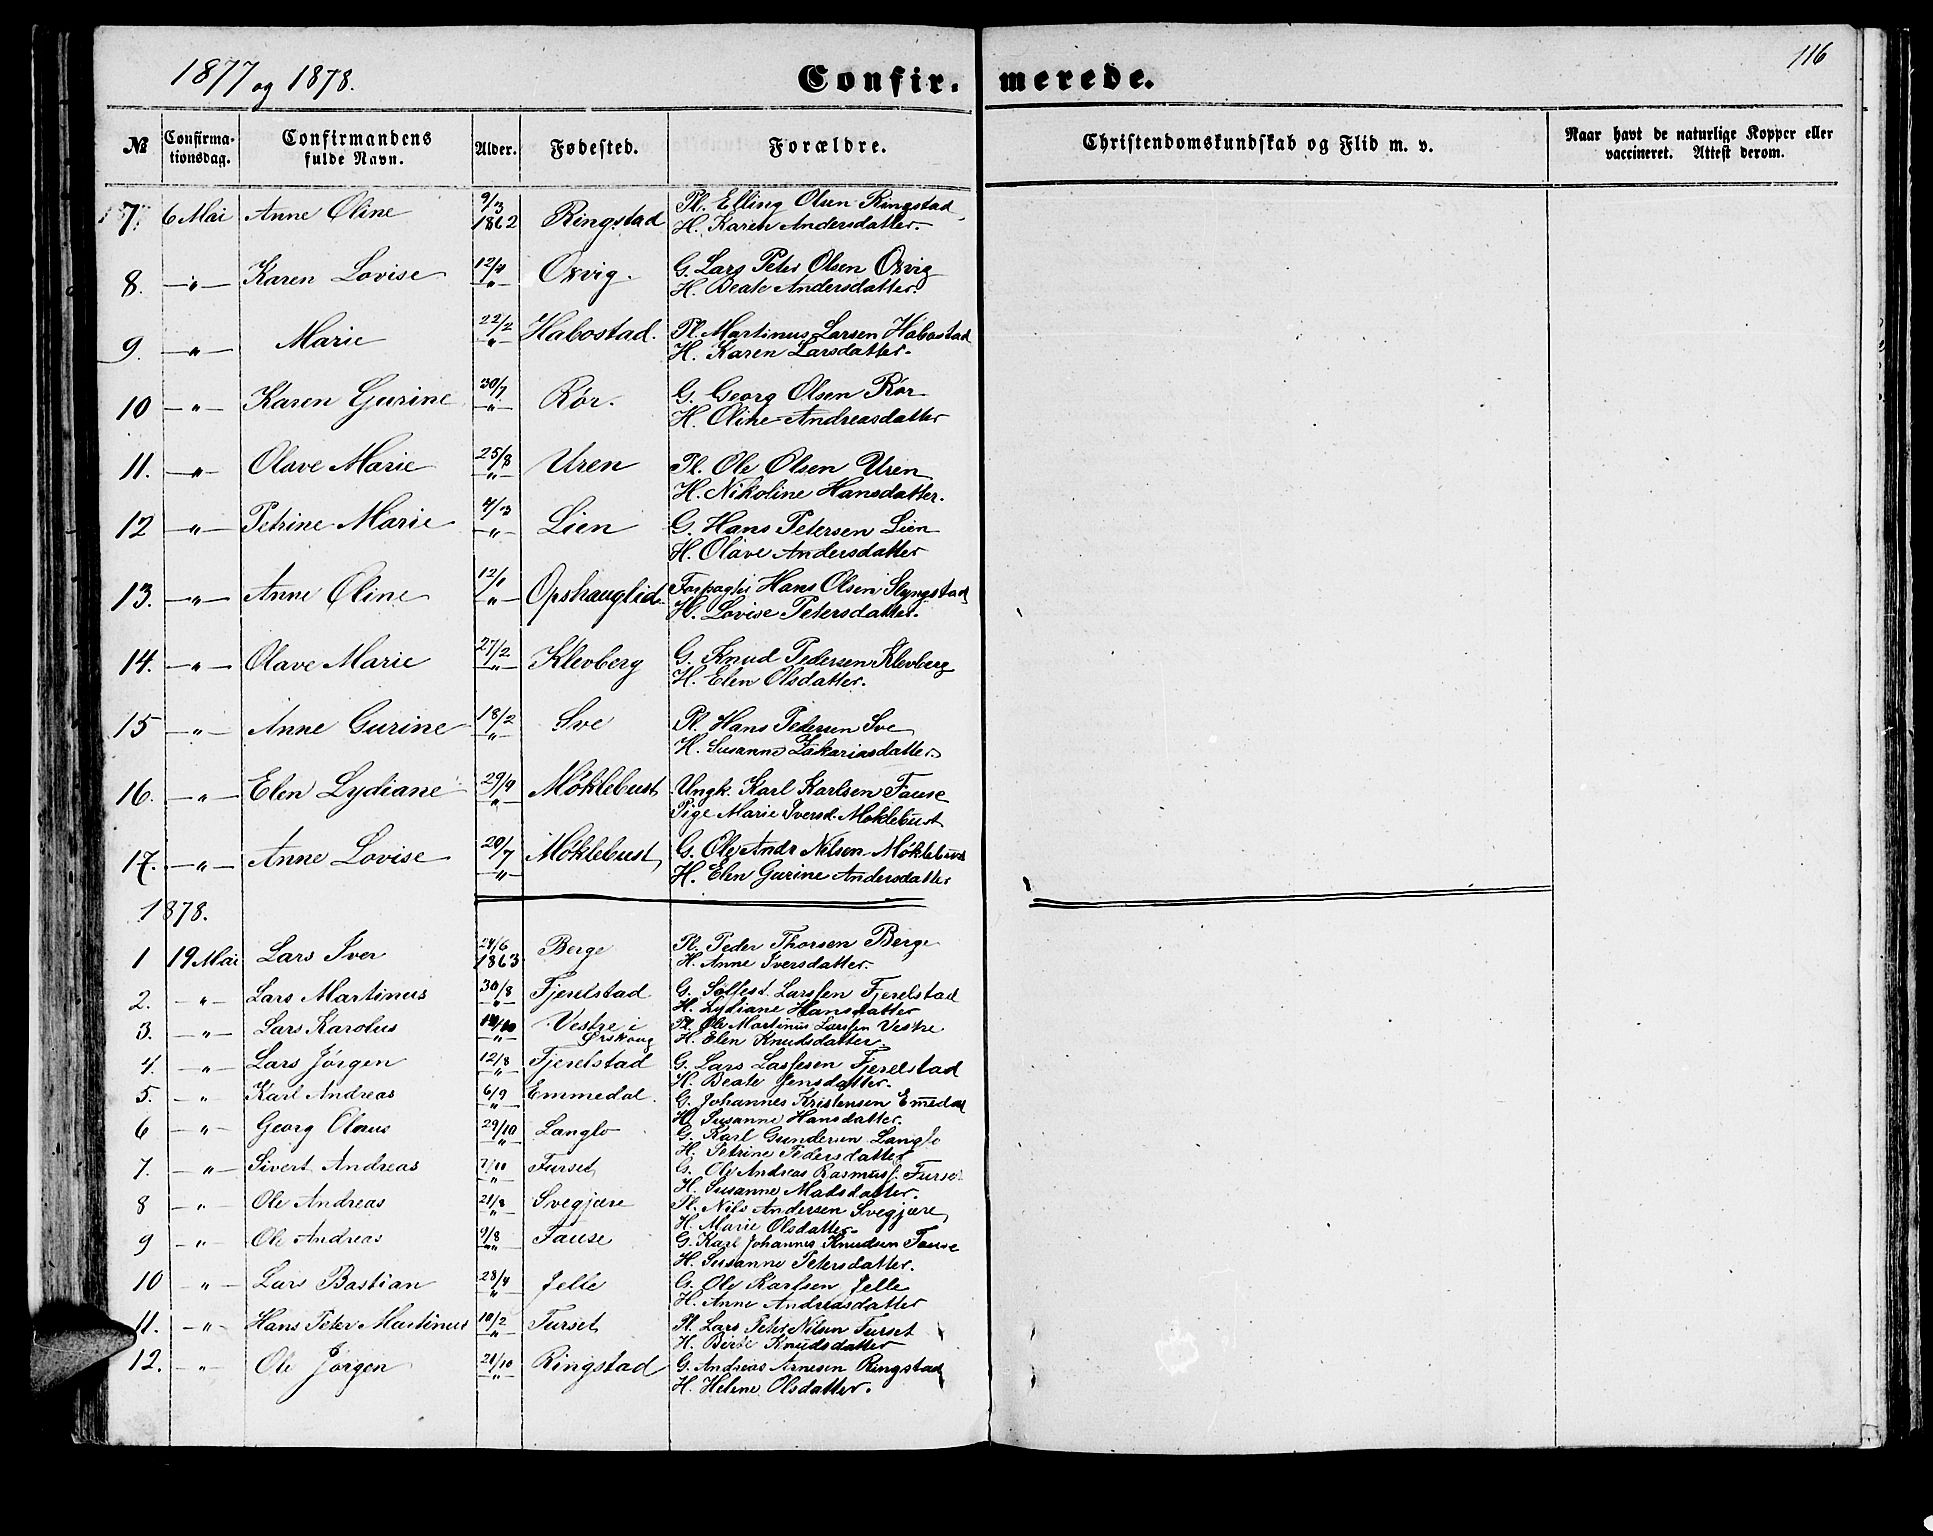 116
1877 og 1878.
Confir. merede.
№ Confirma-tionsdag. Confirmandens fulde Navn. Alder. Fødested. Forældre. Christendomskundskab og Flid m. v. Naar havt de naturlige Kopper eller vaccineret. Attest derom.
7. 6 Mai Anne Oline 9/3 1862 Ringstad Pl. Elling Olsen Ringstad
H. Karen Andersdatter.
8. -"- Karen Lovise 12/4 -"- Oxvig. G. Lars Peter Olsen Oxvig
H. Beate Andersdatter.
9. -"- Marie 22/2 -"- Habostad. Pl. Martinus Larsen Habostad
H. Karen Larsdatter.
10 -"- Karen Gurine 30/7 -"- Rør. G. Georg Olsen Rør
H. Oline Andreasdatter
11. -"- Olave Marie 25/8 -"- Uren Pl. Ole Olsen Uren
H. Nikoline Hansdatter.
12 -"- Petrine Marie 4/3 -"- Lien G. Hans Petersen Lien
H. Olave Andersdatter
13. -"- Anne Oline 12/1 -"- Opshauglid Forpagter Hans Olsen Slyngstad
H. Lovise Petersdatter.
14. -"- Olave Marie 27/2 -"- Klevberg G. Knud Pedersen Klevberg
H. Elen Olsdatter.
15 -"- Anne Gurine 18/2 -"- Sve Pl. Hans Petersen Sve
H. Susanne Zakariasdatter
16. -"- Elen Lydiane 29/9 -"- Møklebust Ungk. Karl Karlsen Fause
Pige Marie Iversd. Møklebust
17. -"- Anne Lovise 20/7 -"- Møklebust, G. Ole Andr Nilsen Møklebust
H. Elen Gurine Andersdatter
1878.
1 19 Mai Lars Iver 24/6 1863 Berge Pl. Peder Thorsen Berge
H. Anne Iversdatter.
2. -"- Lars Martinus 30/8 -"- Fjerelstad G. Sølfest Larssen Fjerelstad
H. Lydiane Hansdatter
3. -"- Lars Karolus -"- Vestre i Ørskoug Pl. Ole Martinus Larssen Vestre
H. Elen Knudsdatter
4. -"- Lars Jørgen 12/8 -"- Fjerelstad G. Lars Lassesen Fjerelstad
H. Beate Jensdatter.
5. -"- Karl Andreas 6/9 -"- Emmedal. G. Johannes Kristensen Emedal
H. Susanne Hansdatter.
6 -"- Georg Olaus 29/10 -"- Langlo G. Karl Gundersen Langlo
H. Petrine Pedersdatter
7. -"- Sivert Andreas 7/10 -"- Furset G. Ole Andreas Rasmuss. Furset
H. Susanne Madsdatter.
8 -"- Ole Andreas 21/8 -"- Svegjære Pl. Nils Andersen Svegjære,
H. Marie Olsdatter
9 -"- Ole Andreas 9/8 -"- Fause G. Karl Johannes Knudsen Fause
H. Susanne Petersdatter.
10 -"- Lars Bastian 28/4 -"- Jelle G. Ole Karlsen Jelle
H. Anne Andreasdatter
11. -"- Hans Peter Martinus 10/2 -"- Furset Pl. Lars Peter Nilsen Furset
H. Birte Knudsdatter
12. -"- Ole Jørgen 21/10 -"- Ringstad G. Andreas Arnesen Ringstad
H. Helene Olsdatter.